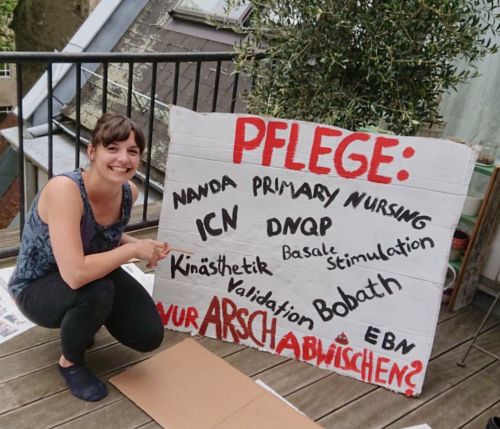 PFLEGE:
NANDA PRIMARY NURSING
ICN DNQP
Basale Stimulation
Kinästhetik
Validation Bobath
EBN
NUR ARSCH ABWISCHEN?